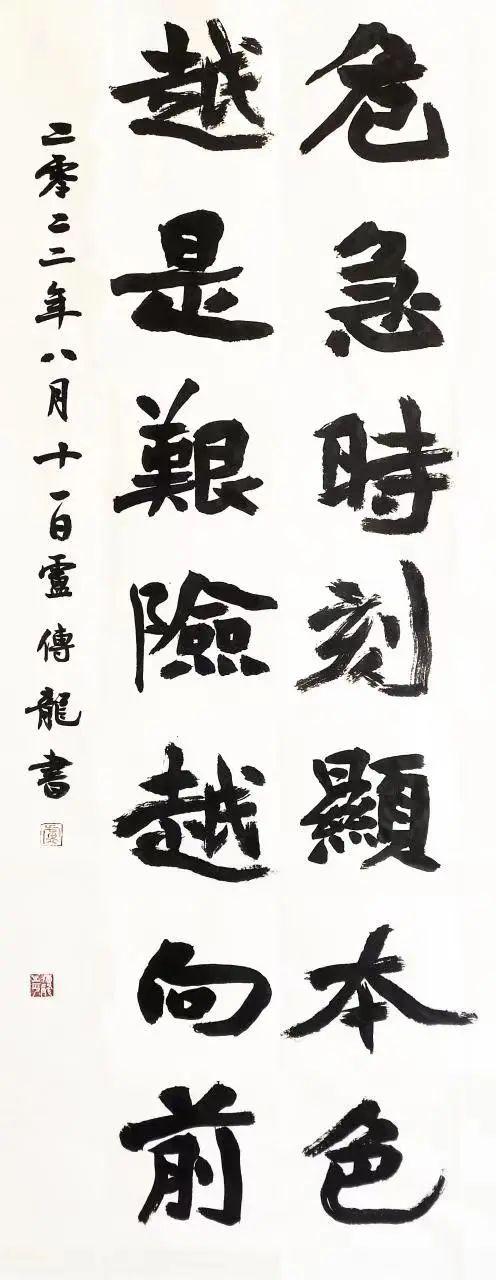 危急時刻顯本色
越是艱險越向前
二零二二年八月十一日盧傳龍書